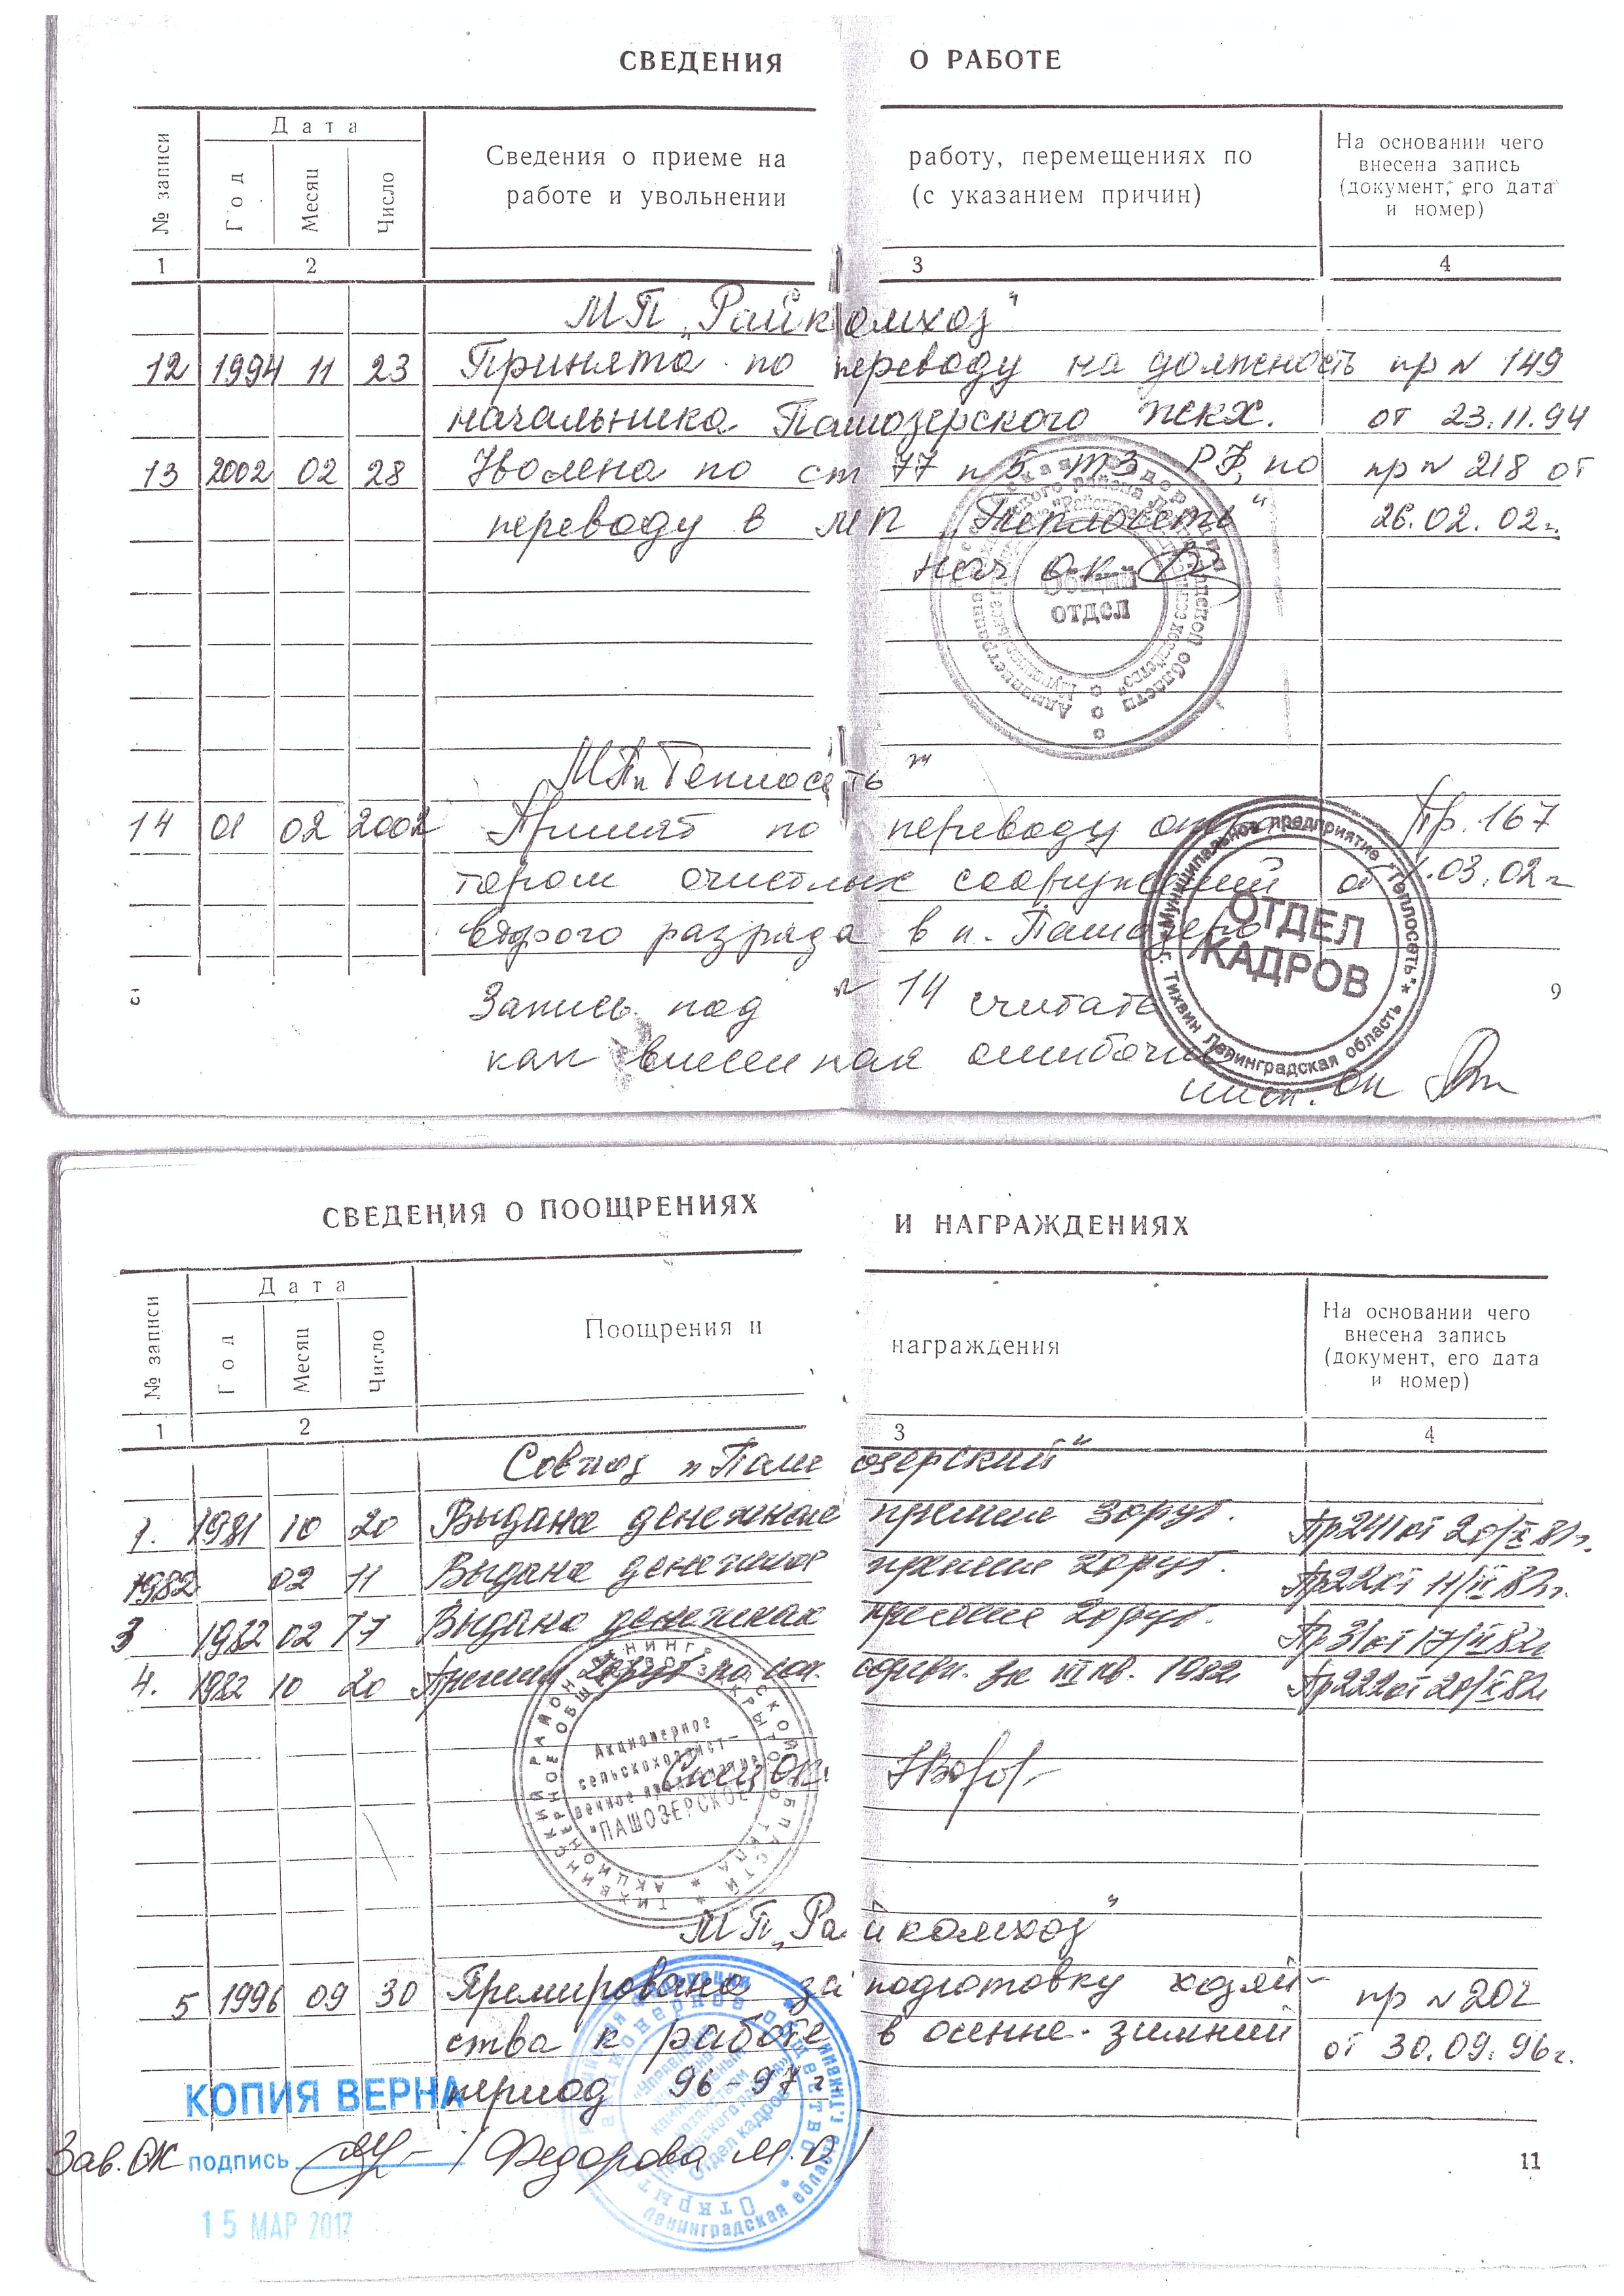 СВЕДЕНИЯ О РАБОТЕ
№ записи
Дата
Год
Месяц
Число
Сведения о приеме на работу, перемещениях по
работе и увольнении (с указанием причин)
На основании чего
внесена запись
(документ, его дата
и номер)
1 2 3 4
МП „Райкомхоз"
12 1994 11 23 Принята по переводу на должность пр № 149
начальника Пашозерского ЖКХ. от 23.11.94
13 2002 02 28 Уволена по ст 77 п 5 ТЗ РФ, по пр № 218 от
переводу в МП „Теплосеть" 26.02.02г.
нач ок
отдел
МП „Теплосеть"
14 01 02 2002 Принят по переводу опер Пр. 167
тором очистных сооружений от 1.03.02г
второго разряда в п. Пашозеро
Муниципальное предприятие "Теплосеть"
г. Тихвин Ленинградская область
ОТДЕЛ
КАДРОВ
9
Запись под № 14 считать
как внесенная ошибочно
инсп. ок
СВЕДЕНИЯ О ПООЩРЕНИЯХ И НАГРАЖДЕНИЯХ
№ записи
Дата
Год
Месяц
Число
Поощрения и награждения
На основании чего
внесена запись
(документ, его дата
и номер)
1 2 3 4
Совхоз „Пашозерский"
1. 1981 10 20 Выдана денежная премия 30 руб. Пр 241 от 20/X 81г.
1982 02 11 Выдана денежная премия 20 руб. Пр 22 от 11/II 82г.
3 1982 02 17 Выдана денежная премия 20 руб. Пр 31 от 17/II 82г
4. 1982 10 20 Премия руб по соц. соревн. за III кв. 1982 Пр 222 от 20/X 82г
Акционерное
сельскохозяйст-
венное
"ПАШОЗЕРСКОЕ"
МП „Райкомхоз"
5 1996 09 30 Премирована за подготовку хозяй- пр № 202
ства к работе в осенне-зимний от 30.09.96г.
период 96-97г
КОПИЯ ВЕРНА
Зав. ОК подпись / Федорова М.П /
Отдел кадров
Ленинградская область
15 МАР 2017
11